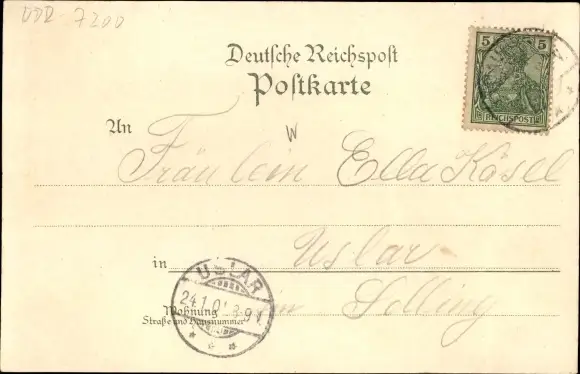 DDR 7200
Deutsche Reichspost
Postkarte
5 5
REICHSPOST
An
Fräulein Ella Kösel
W
in Uslar
im Solling
Wohnung
Straße und Hausnummer
USLAR
24.1.01.8-9V.